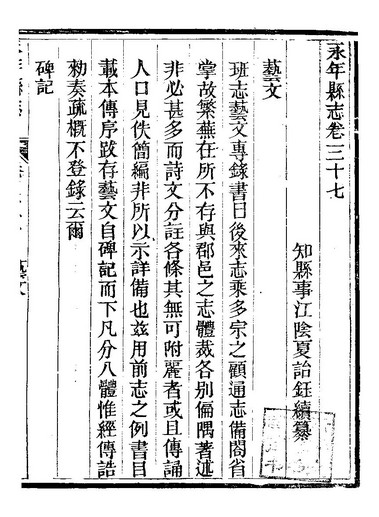 永年縣志卷三十七
知縣事江陰夏詒鈺續纂
藝文
班志藝文專錄書目後來志乘多宗之顧通志備閣省
掌故繁蕪在所不存與郡邑之志體裁各別偏隅著述
非必甚多而詩文分註各條其無可附麗者或且傳誦
人口見佚簡編非所以示詳備也茲用前志之例書目
載本傳序跋存藝文自碑記而下凡分八體惟經傳誥
勑奏疏概不登錄云爾
碑記